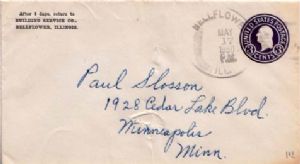 After 5 days, return to
BUILDING SERVICE CO.,
BELLFLOWER, ILLINOIS.
BELLFLOWER
MAY
17
P.M.
ILL.
UNITED STATES
CENTS
Paul Slosson
1928 Cedar Lake Blvd.
Minneapolis
Minn.